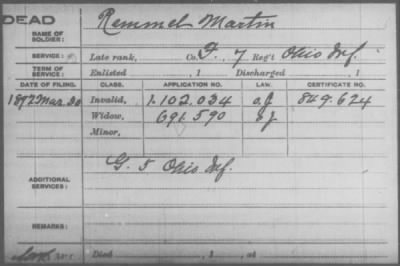 DEAD
NAME OF SOLDIER: Remmel Martin
SERVICE: Late rank, Co. F, 7 Reg't Ohio Inf.
TERM OF SERVICE: Enlisted , 1 Discharged , 1
DATE OF FILING. CLASS. APPLICATION NO. LAW. CERTIFICATE NO.
Mar. Invalid, 1.102.034 849.624
Widow, 691.590
Minor,
ADDITIONAL SERVICES: G. 5 Ohio Inf.
REMARKS:
Died , 1 , at